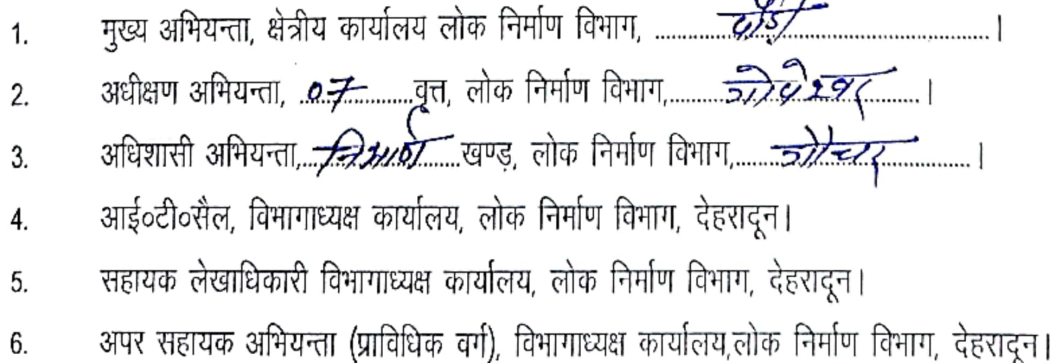 1. मुख्य अभियन्ता, क्षेत्रीय कार्यालय लोक निर्माण विभाग, पौड़ी।
2. अधीक्षण अभियन्ता, 07 वृत्त, लोक निर्माण विभाग, गोपेश्वर।
3. अधिशासी अभियन्ता, निर्माण खण्ड़, लोक निर्माण विभाग, गौचर।
4. आई०टी०सैल, विभागाध्यक्ष कार्यालय, लोक निर्माण विभाग, देहरादून।
5. सहायक लेखाधिकारी विभागाध्यक्ष कार्यालय, लोक निर्माण विभाग, देहरादून।
6. अपर सहायक अभियन्ता (प्राविधिक वर्ग), विभागाध्यक्ष कार्यालय,लोक निर्माण विभाग, देहरादून।